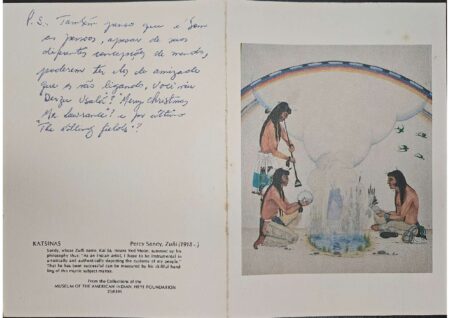 P.S. Também penso que é bom
as pessoas, apesar de suas
diferentes concepções de mundo,
poderem ter elos de amizade
que as vão ligando. Você viu
Derzu Uzalá? Merry Christmas
Mr Lawrance? e por último
"The killing fields"?
KATSINAS Percy Sandy, Zuñi (1918 - )
Sandy, whose Zuñi name, Kai Sa, means Red Moon, summed up his
philosophy thus: "As an Indian artist, I hope to be instrumental in
artistically and authentically depicting the customs of my people."
That he has been successful can be measured by his skillful hand-
ling of this mystic subject matter.
From the Collections of the
MUSEUM OF THE AMERICAN INDIAN, HEYE FOUNDATION